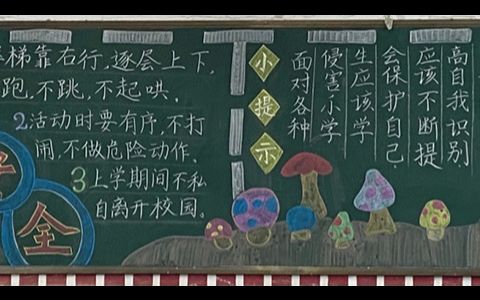 梯靠右行,逐层上下,
跑,不跳,不起哄。
2活动时要有序,不打
闹,不做危险动作。
3上学期间不私
自离开校园。
全
小提示
面对各种
侵害小学
生应该学
会保护自己,
应该不断提
高自我识别